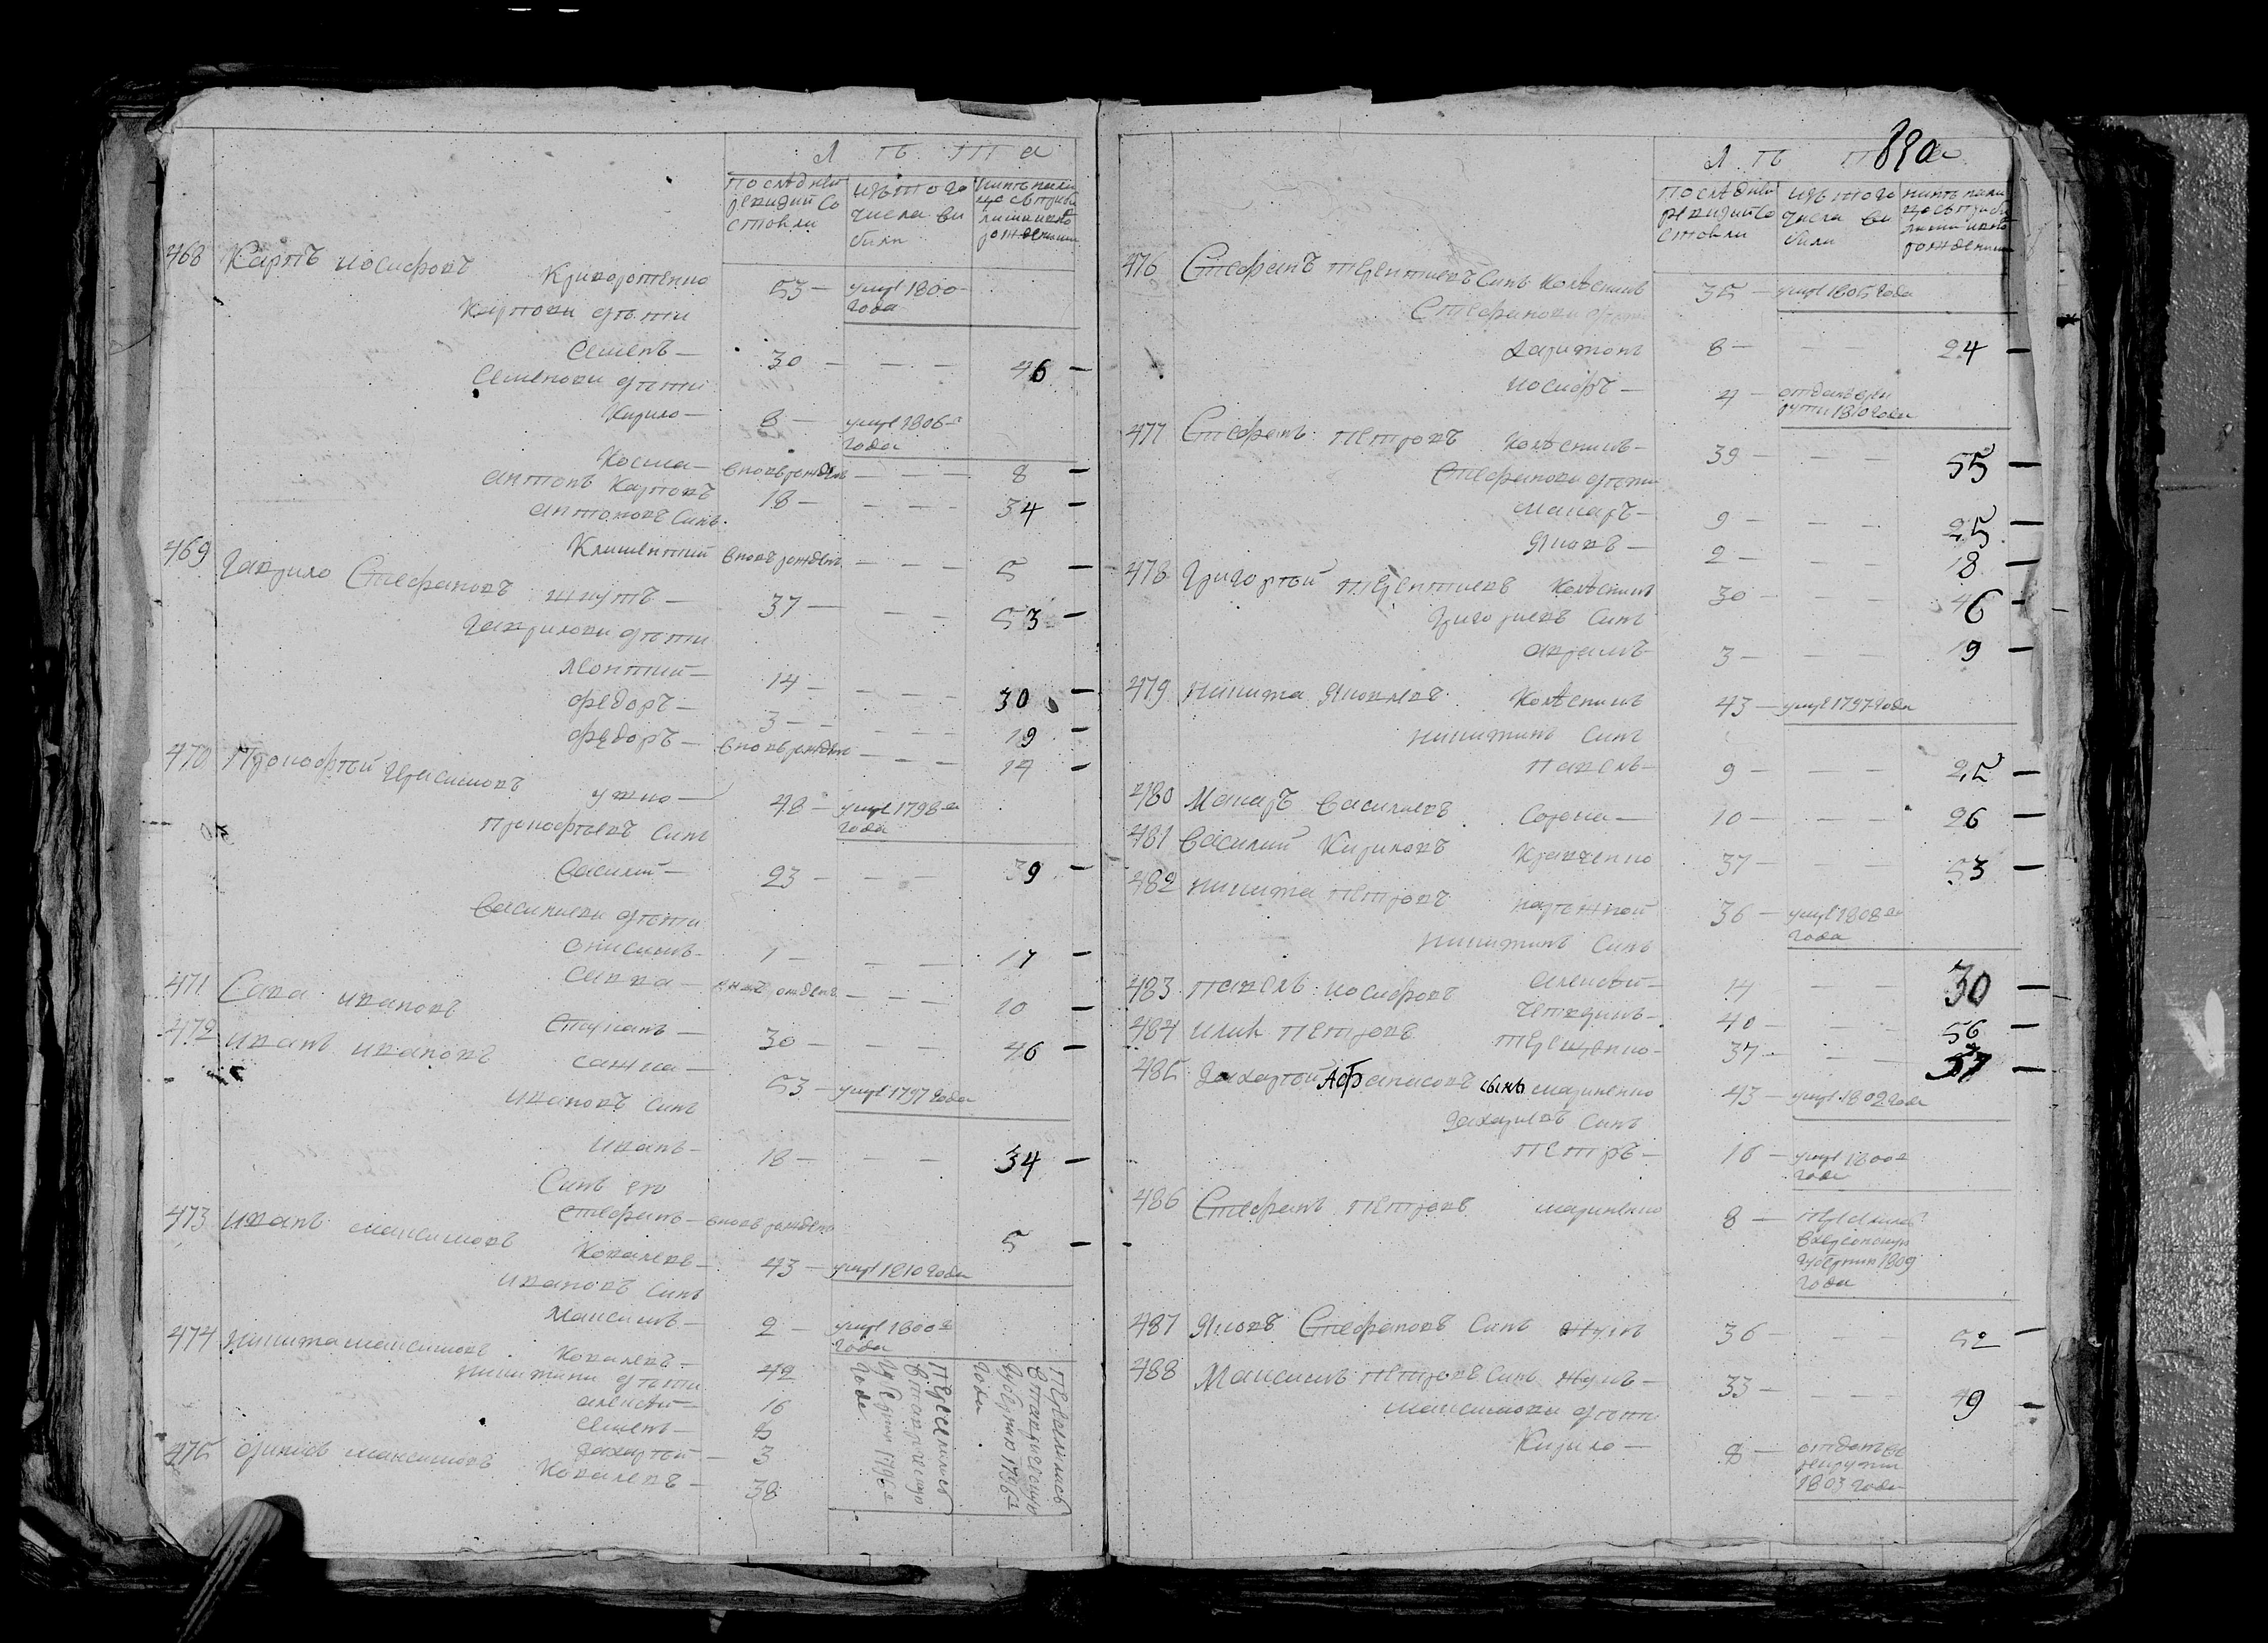 Л ѣ т а
По следней ревизии состояли
изъ того числа выбыли
ныне на лицо съ прибылыми и новорожденными
468 Карпъ иосифовъ Криворотенко 53 — умре 1800 года
Карпови дѣти
Семенъ — 30 — — — 46 —
Семенови дѣти
Кирило — 8 — умре 1806 года
Косма — вновь рожденъ — — — 8 —
антонъ Карповъ 18 — — — — 34 —
антоновъ Синъ
Климентий вновь рожденъ — — — 5 —
469 Гаврило Стефановъ 37 — — — 53 —
Гаврилови дѣти
Леонтий — 14 — — — — 30 —
федоръ — 3 — — — — 19 —
федоръ — вновь рожденъ — — — 17 —
470 Прокофий Герасимовъ ужко — 48 — умре 1798 года
Прокофьевъ Синъ
Василий — 23 — — — — 39 —
Василиеви дѣти
Онисимъ — 1 — — — — 17 —
Савва — вновь рожденъ — — — 10
471 Сава ивановъ Ступакъ — 30 — — — — 46 —
472 иванъ ивановъ сажка — 53 — умре 1797 года
ивановъ Синъ
иванъ — 18 — — — 34 —
Синъ его
Стефанъ — вновь рожденъ 5 —
473 иванъ максимовъ Ковалевъ — 43 — умре 1810 года
ивановъ Синъ
Максимъ — 2 — умре 1800 года
474 никита максимовъ Ковалевъ — 42
никитини дѣти
алексѣй — 16
Семенъ — 8
Захарий — 3
475 максимовъ Ковалевъ — 38
Переселились в таврическую губернию 1796 года
Переселились в таврическую губернию 1796 года
890
Л ѣ т а
По следней ревизии состояли
изъ того числа выбыли
ныне на лицо съ прибылыми и новорожденными
476 Стефанъ терентиевъ Синъ Колѣсникъ 35 — умре 1805 года
Стефанови дѣти
Харитонъ 8 — — — 24 —
иосифъ — 4 — отданъ в рекрути 1810 года
477 Стефанъ Петровъ Колѣсникъ — 39 — — — 55 —
Стефанови дѣти
макаръ — 9 — — — 25 —
Яковъ — 2 — — — 18 —
478 Григорий терентиевъ Колѣсникъ 30 — — — 46 —
Григориевъ Синъ
аврамъ 3 — — — 19 —
479 никита Яковлевъ Колѣсникъ 43 — умре 1797 года
никитинъ Синъ
Павелъ — 9 — — — 25 —
480 Макаръ Василиевъ Сорока — 10 — — — 26 —
481 Василий Кириловъ Кравченко 37 — — — 53 —
482 никита Петровъ 36 — умре 1808 года
никитинъ Синъ
алексѣй — 14 — — 30 —
483 Павелъ иосифовъ 40 — — — 56 —
484 илия Петровъ терещенко — 37 — — — 57 —
485 Захарий Афанасовъ сынъ мариненко 43 — умре 1802 года
Захариевъ Синъ
Петръ — 16 — умре 1800 года
486 Стефанъ Петровъ мариненко 8 — Переселенъ в херсонскую губернию 1809 года
487 Яковъ Стефановъ Синъ 36 — — — 52 —
488 Максимъ Петровъ Синъ — 33 — — — 49 —
максимови дѣти
Кирило — 8 — отданъ в рекрути 1803 года